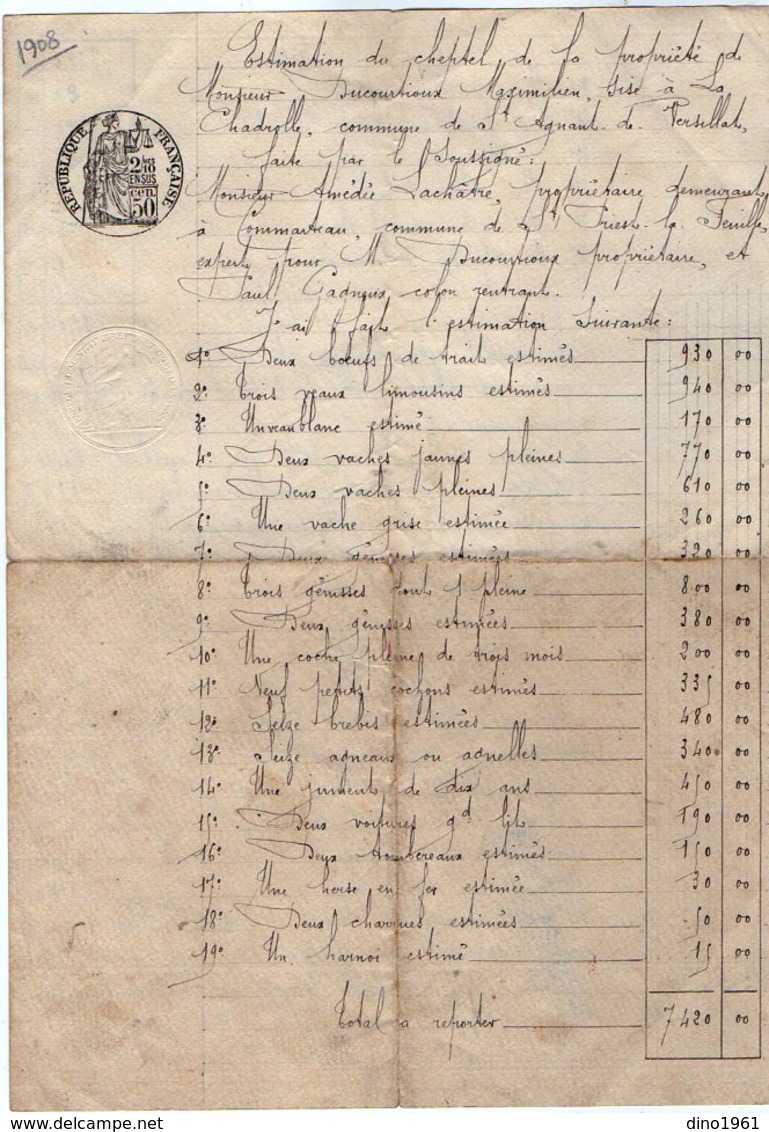 1908
Estimation du cheptel de la propriété de
Monsieur Ducourtioux Maximilien, sise à La
Chadrolle, commune de St Agnant-de-Versillat,
faite par le soussigné:
Monsieur Amédée Lachâtre, propriétaire demeurant
à Commarteau, commune de St Priest-la-Feuille,
expert pour M. Ducourtioux propriétaire, et
Paul colon rentrant.
J'ai fait l'estimation suivante:
1º Deux bœufs de trait estimés 930 00
2º Trois veaux limousins estimés 940 00
3º Un veau blanc estimé 170 00
4º Deux vaches jaunes pleines 770 00
5º Deux vaches pleines 610 00
6º Une vache grise estimée 260 00
7º Deux génisses estimées 320 00
8º Trois génisses dont 1 pleine 800 00
9º Deux génisses estimées 380 00
10º Une coche pleine de trois mois 200 00
11º Neuf petits cochons estimés 335 00
12º Seize brebis estimées 480 00
13º Seize agneaux ou agnelles 340 00
14º Une jument de dix ans 450 00
15º Deux voitures gd lit 190 00
16º Deux tombereaux estimés 150 00
17º Une herse en fer estimée 30 00
18º Deux charrues estimées 50 00
19º Un harnoi estimé 15 00
Total a reporter 7420 00
REPUBLIQUE FRANÇAISE
2/10es
EN SUS
50 cen
delcampe.net
dino1961